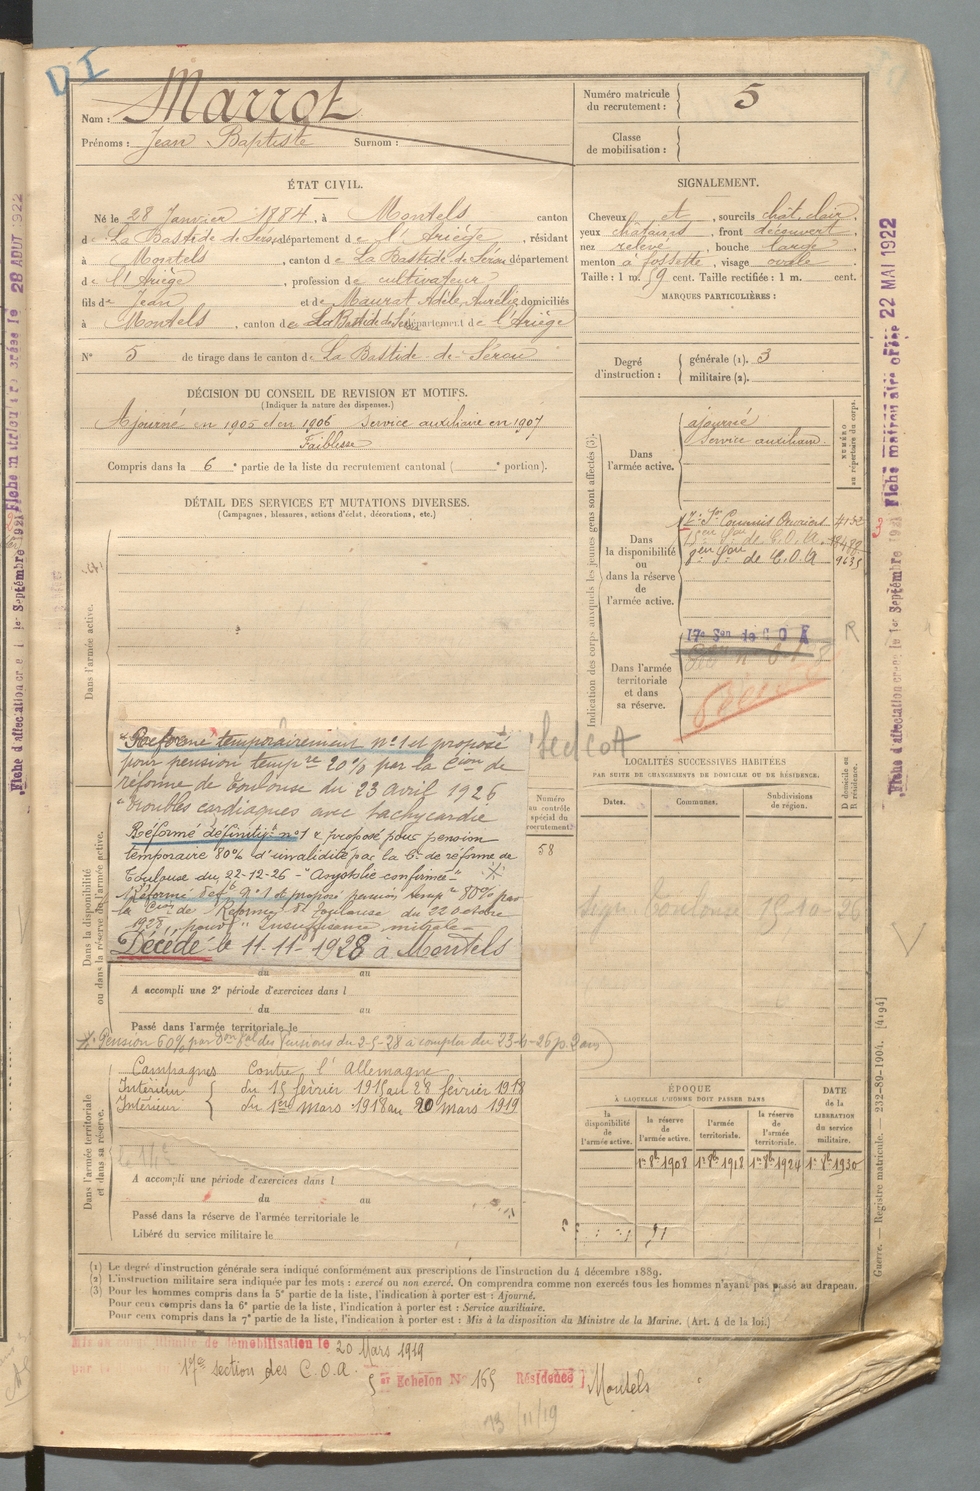 DI
Nom : Marrot
Prénoms : Jean Baptiste Surnom :
Numéro matricule du recrutement : 5
Classe de mobilisation :
ÉTAT CIVIL.
Né le 28 Janvier 1884, à Montels canton
de La Bastide de Sérou département de l'Ariège, résidant
à Montels, canton de La Bastide de Sérou département
de l'Ariège, profession de cultivateur
fils de Jean et de Maurat Adèle, Aurélie domiciliés
à Montels, canton de La Bastide de Sérou département de l'Ariège
N° 5 de tirage dans le canton de La Bastide-de-Sérou
SIGNALEMENT.
Cheveux et, sourcils chât. clair.
yeux châtains, front découvert,
nez relevé, bouche large
menton à fossette, visage ovale
Taille : 1 m. 59 cent. Taille rectifiée : 1 m. cent.
MARQUES PARTICULIÈRES :
Degré d'instruction :
générale (1). 3
militaire (2).
DÉCISION DU CONSEIL DE REVISION ET MOTIFS.
(Indiquer la nature des dispenses.)
Ajourné en 1905 et en 1906 Service auxiliaire en 1907
Faiblesse
Compris dans la 6e partie de la liste du recrutement cantonal ( e portion).
DÉTAIL DES SERVICES ET MUTATIONS DIVERSES.
(Campagnes, blessures, actions d'éclat, décorations, etc.)
Dans l'armée active.
Indication des corps auxquels les jeunes gens sont affectés (3).
NUMÉRO au répertoire du corps.
Dans l'armée active.
ajourné
Service auxiliaire.
Dans la disponibilité ou dans la réserve de l'armée active.
17e Son Commis Ouvriers
15eme Son de C.O.A.
8eme Son de C.O.A 9635
Dans l'armée territoriale et dans sa réserve.
17e Son de C O A
R
"Réformé temporairement n°1 et proposé
pour pension tempre 20% par la Cion de
réforme de Toulouse du 23 avril 1926
"Troubles cardiaques avec tachycardie
Réformé définitif n°1 & proposé pour pension
temporaire 80% d'invalidité par la Con de réforme de
Toulouse du 22-12-26 - "Asystolie confirmée"
Réformé def n°1 et proposé pension temp 80% par
la Cion de Réforme de Toulouse du 22 octobre
pour "Insuffisance mitrale
Décédé le 11-11-1928 à Montels
Dans la disponibilité ou dans la réserve de l'armée active.
du au
A accompli une 2e période d'exercices dans l
du au
Passé dans l'armée territoriale le
Pension 60% par des Pensions du 2-5-28 à compter du
LOCALITÉS SUCCESSIVES HABITÉES
PAR SUITE DE CHANGEMENTS DE DOMICILE OU DE RÉSIDENCE.
Numéro au contrôle spécial du recrutement.
Dates.
Communes.
Subdivisions de région.
D domicile ou R résidence.
58
Toulouse 15-10-26
Campagnes Contre l'Allemagne
Intérieur du 15 février 1915 au 28 février 1918
Intérieur du 1er mars 1918 au 20 mars 1919
Dans l'armée territoriale et dans sa réserve.
A accompli une période d'exercices dans l
du au
Passé dans la réserve de l'armée territoriale le
Libéré du service militaire le
ÉPOQUE
À LAQUELLE L'HOMME DOIT PASSER DANS
la disponibilité de l'armée active.
la réserve de l'armée active.
l'armée territoriale.
la réserve de l'armée territoriale.
DATE de la LIBÉRATION du service militaire.
1er 8bre 1908
1er 8bre 1918
1er 8bre 1924
1er 8bre 1930
(1) Le degré d'instruction générale sera indiqué conformément aux prescriptions de l'instruction du 4 décembre 1889.
(2) L'instruction militaire sera indiquée par les mots : exercé ou non exercé. On comprendra comme non exercés tous les hommes n'ayant pas passé au drapeau.
(3) Pour les hommes compris dans la 5e partie de la liste, l'indication à porter est : Ajourné.
Pour ceux compris dans la 6e partie de la liste, l'indication à porter est : Service auxiliaire.
Pour ceux compris dans la 7e partie de la liste, l'indication à porter est : Mis à la disposition du Ministre de la Marine. (Art. 4 de la loi.)
démobilisation le 20 Mars 1919
17e section des C.O.A.
5er Echelon N° 165 Résidence Montels
13/11/19
Guerre. — Registre matricule. — 232-89-1904. [4194]
Fiche d'affectation créée le 1er Septembre 1921
Fiche matriculaire créée le 28 AOUT 1922
Fiche d'affectation créée le 1er Septembre 1921
Fiche matriculaire créée 22 MAI 1922